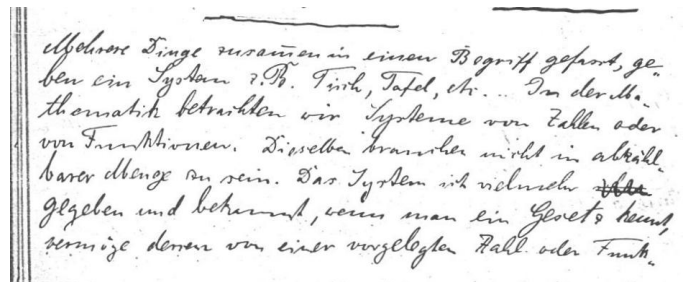 Mehrere Dinge zusammen in einen Begriff gefasst, ge-
ben ein System z.B. Tisch, Tafel, etc... In der Ma-
thematik betrachten wir Systeme von Zahlen oder
von Funktionen. Dieselben brauchen nicht in abzähl-
barer Menge zu sein. Das System ist vielmehr
gegeben und bekannt, wenn man ein Gesetz kennt,
vermöge dessen von einer vorgelegten Zahl oder Funk-